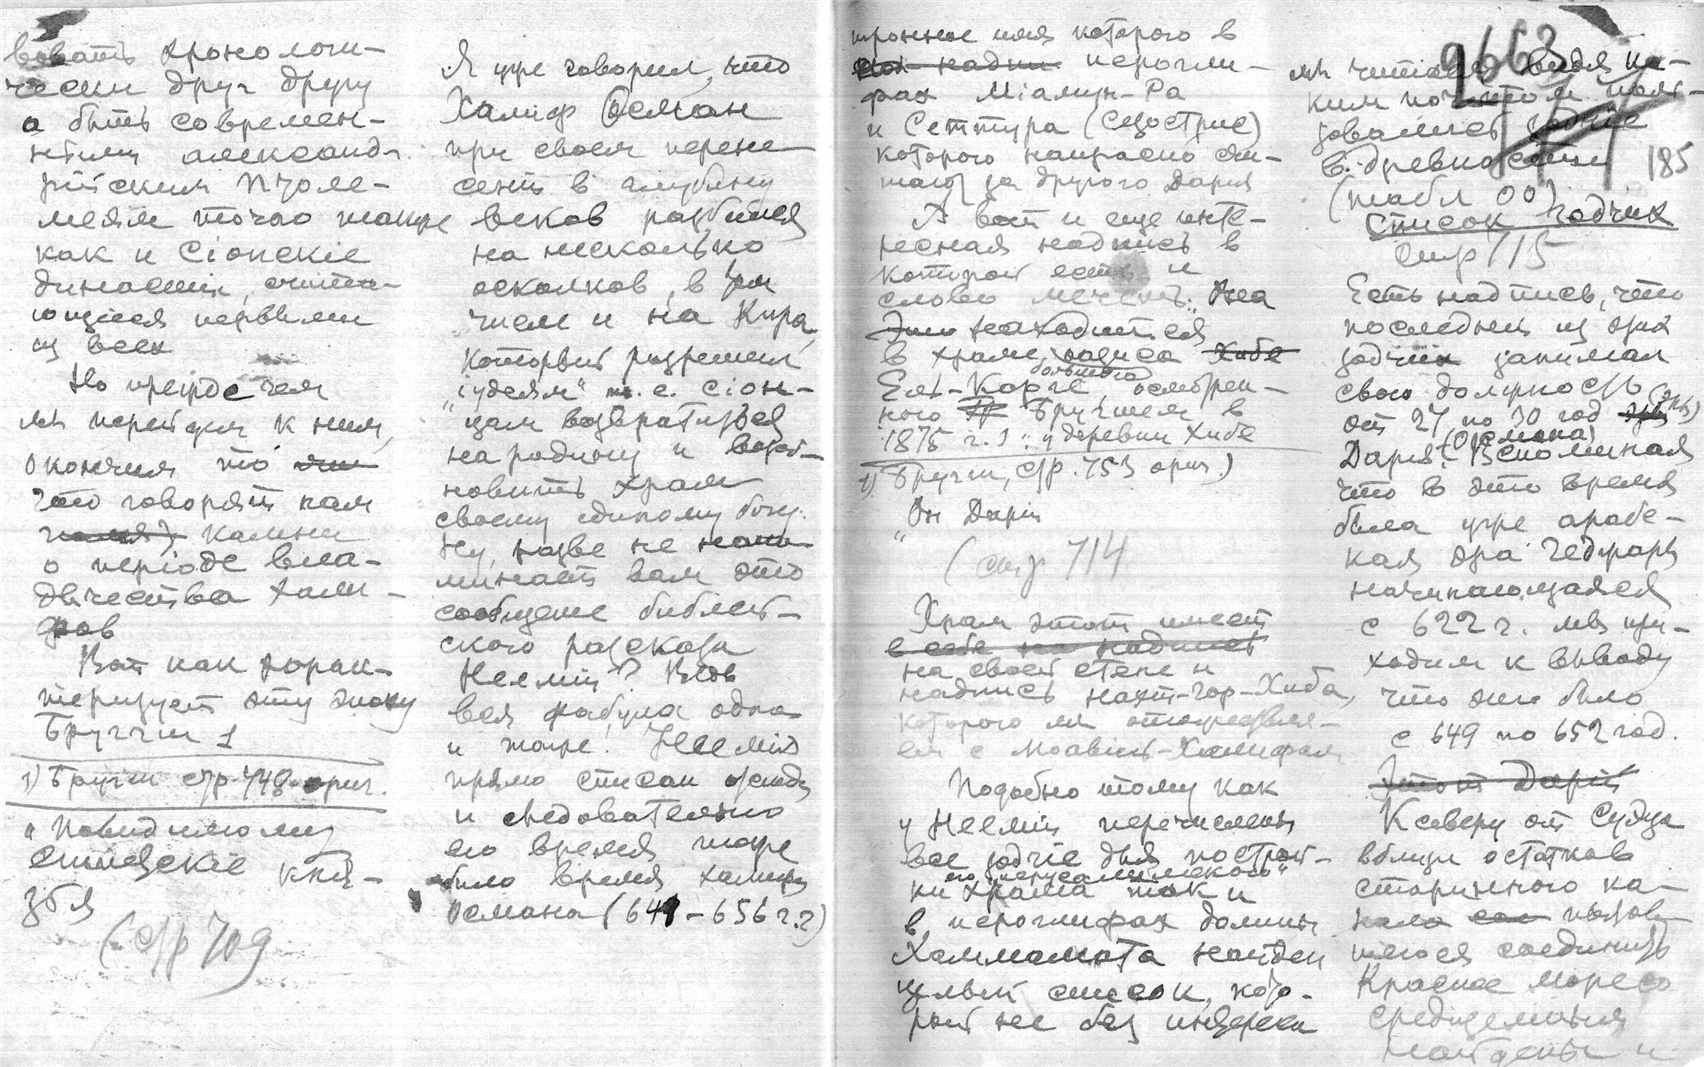 вовать хронологи-
чески друг другу
а быть современ-
ными александ-
рійским Птоле-
меям точно также
как и Сіонскіе
династіи, счита-
ющіеся первыми
из всех
Но прежде чем
мы перейдем к ним,
окончим то
что говорят нам
камни
о періоде вла-
дычества хали-
фов
Вот как харак-
теризует эту эпоху
Бругши 1
1) Бругш стр 748 ориг.
"Повидимому
египецскіе кня-
зья
(стр 709
Я уже говорил, что
Халиф Осман
при своем перене-
сеніи в глубину
веков разбился
на несколько
осколков, в том
числе и на Кира,
который разрешил
"іудеям" т. е. сіон-
цам возвратиться
на родину и возоб-
новить храм
своему единому богу.
Ну, разве не напо-
минает вам это
сообщение библей-
ского разсказа
Неемии? Ведь
вся фабула одна
и таже. Неемія
прямо списан отсюда
и следовательно
его время тоже
было время халифа
Османа (644-656 г.?)
тронное имя которого в
иерогли-
фах Міамун-Ра
и Сеттура (Сезострис)
которого напрасно счи-
тают за другого Дарія
А вот и еще инте-
ресная надпись в
которой есть и
слово мечеть: Она
находится
в храме оазиса
Большого
Ель-Карге осмотрен-
ного Бругшем в
1875 г. 1 у деревни Хибе
1) Бругш, стр. 753 ориг.)
"Он Дарій
(стр 714
Храм этот имеет
на своей стене и
надпись нахт-гор-Хиба,
которого мы отождествля-
ем с Моавіей-Халифом
Подобно тому как
у Нееміи перечислены
все зодчіе для построй-
ки его "іерусалимского"
храма так и
в иероглифах долины
Хаммамата найден
целый список, кото-
рый не без интереса
9663
185
мы читаем видя ка-
ким почетом поль-
зовались зодчіе
в древности
(табл 00)
Список зодчих
стр 715
Есть надпись, что
последний из этих
зодчих занимал
свою должность
от 27 по 30 год
Дарія (Османа) Вспоминая
что в это время
была уже арабс-
кая эра Геджры
начинающаяся
с 622 г. мы при-
ходим к выводу
что это было
с 649 по 652 год.
Этот Дарій
К северу от Суэца
вблизи остатков
старинного ка-
нала пытав-
шегося соединить
Красное море со
средиземным
найдены и